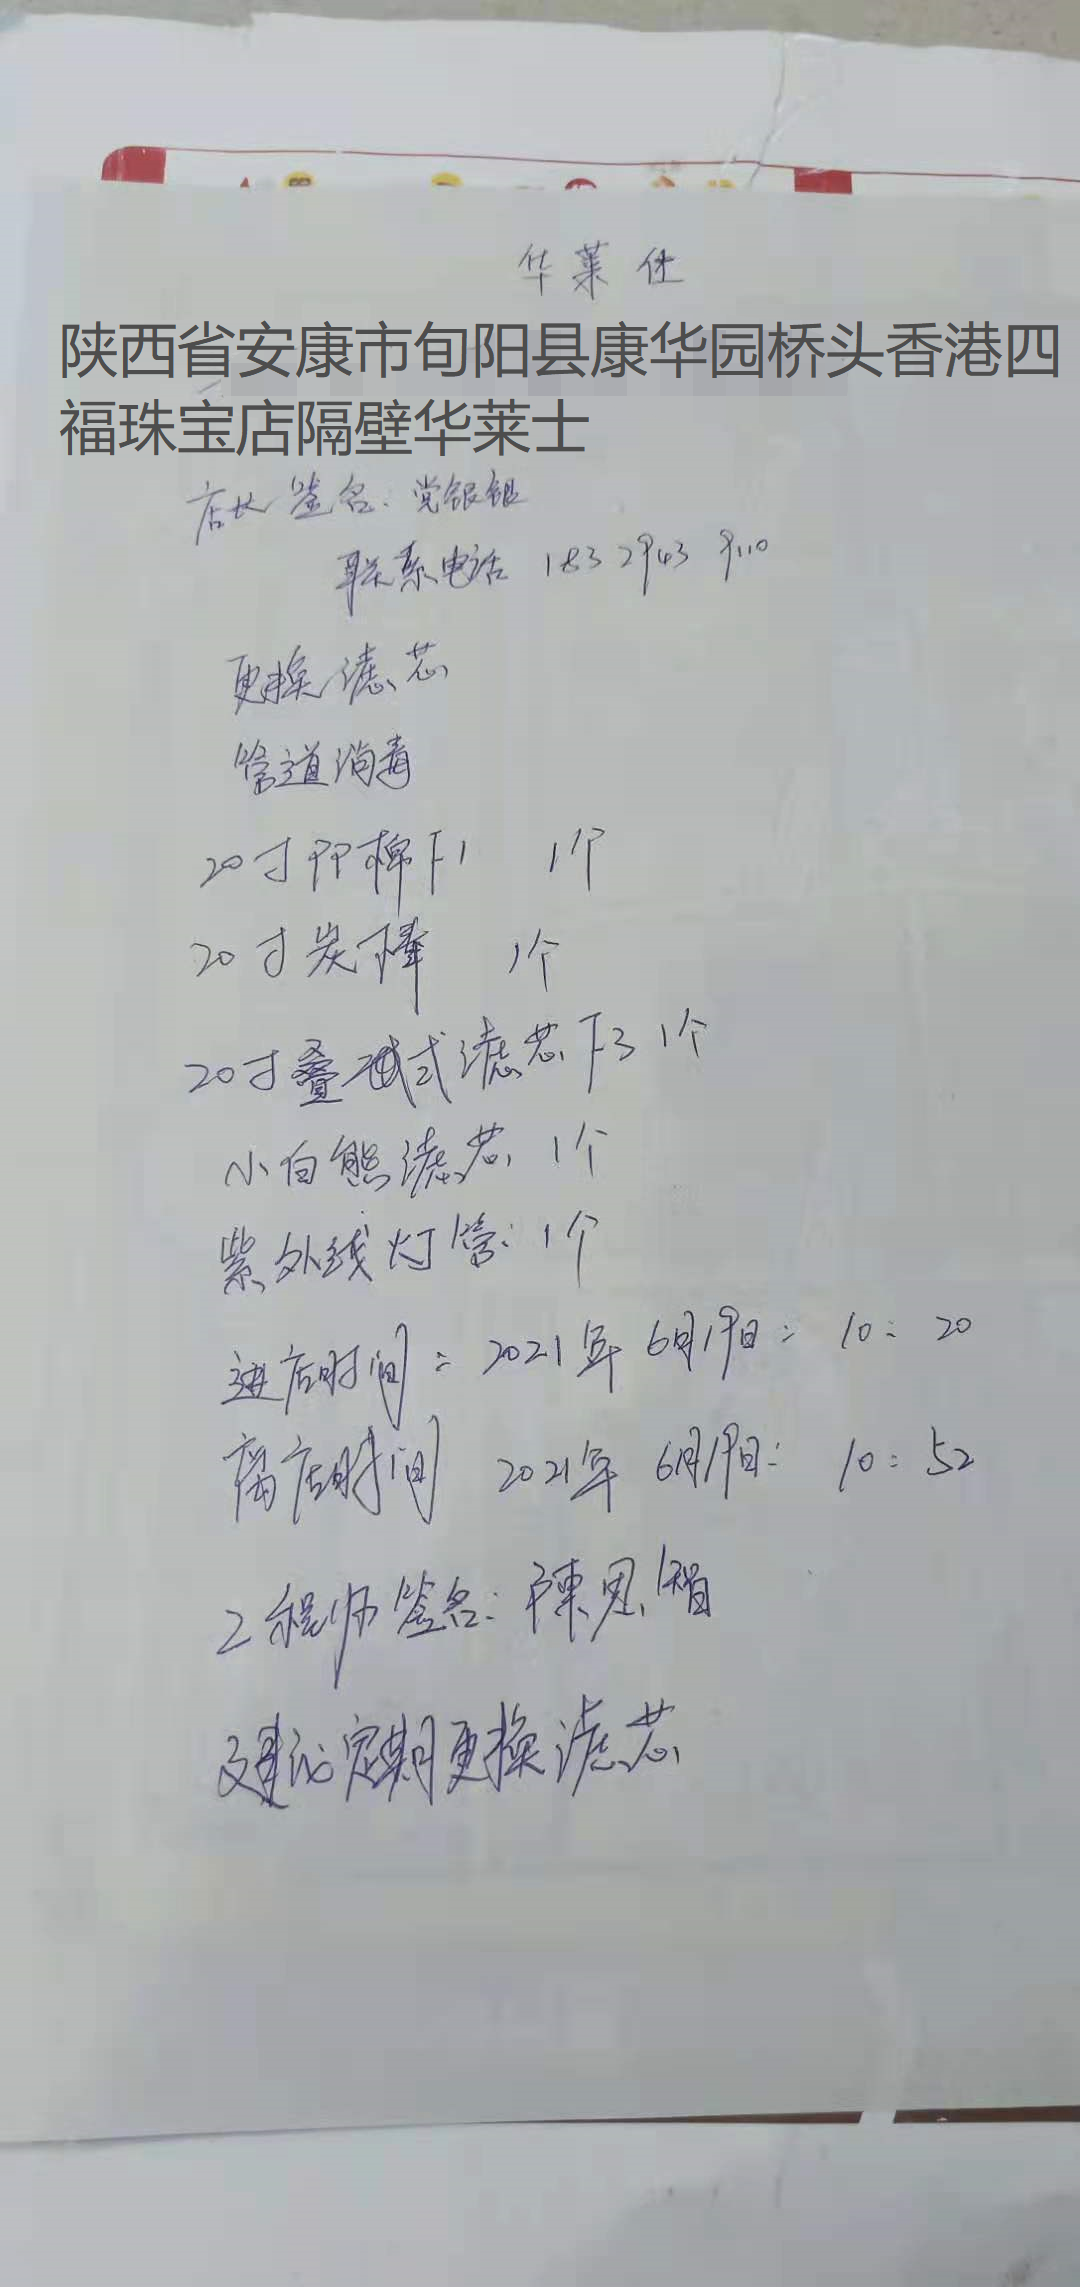 华莱仕
陕西省安康市旬阳县康华园桥头香港四
福珠宝店隔壁华莱士
店长签名：党银银
联系电话 183 2943 9110
更换滤芯
管道消毒
20寸PP棉F1 1个
20寸炭棒 1个
20寸叠式滤芯F3 1个
小白熊滤芯 1个
紫外线灯管：1个
进店时间：2021年6月19日：10：20
离店时间 2021年6月19日：10：52
工程师签名：陳思智
建议定期更换滤芯